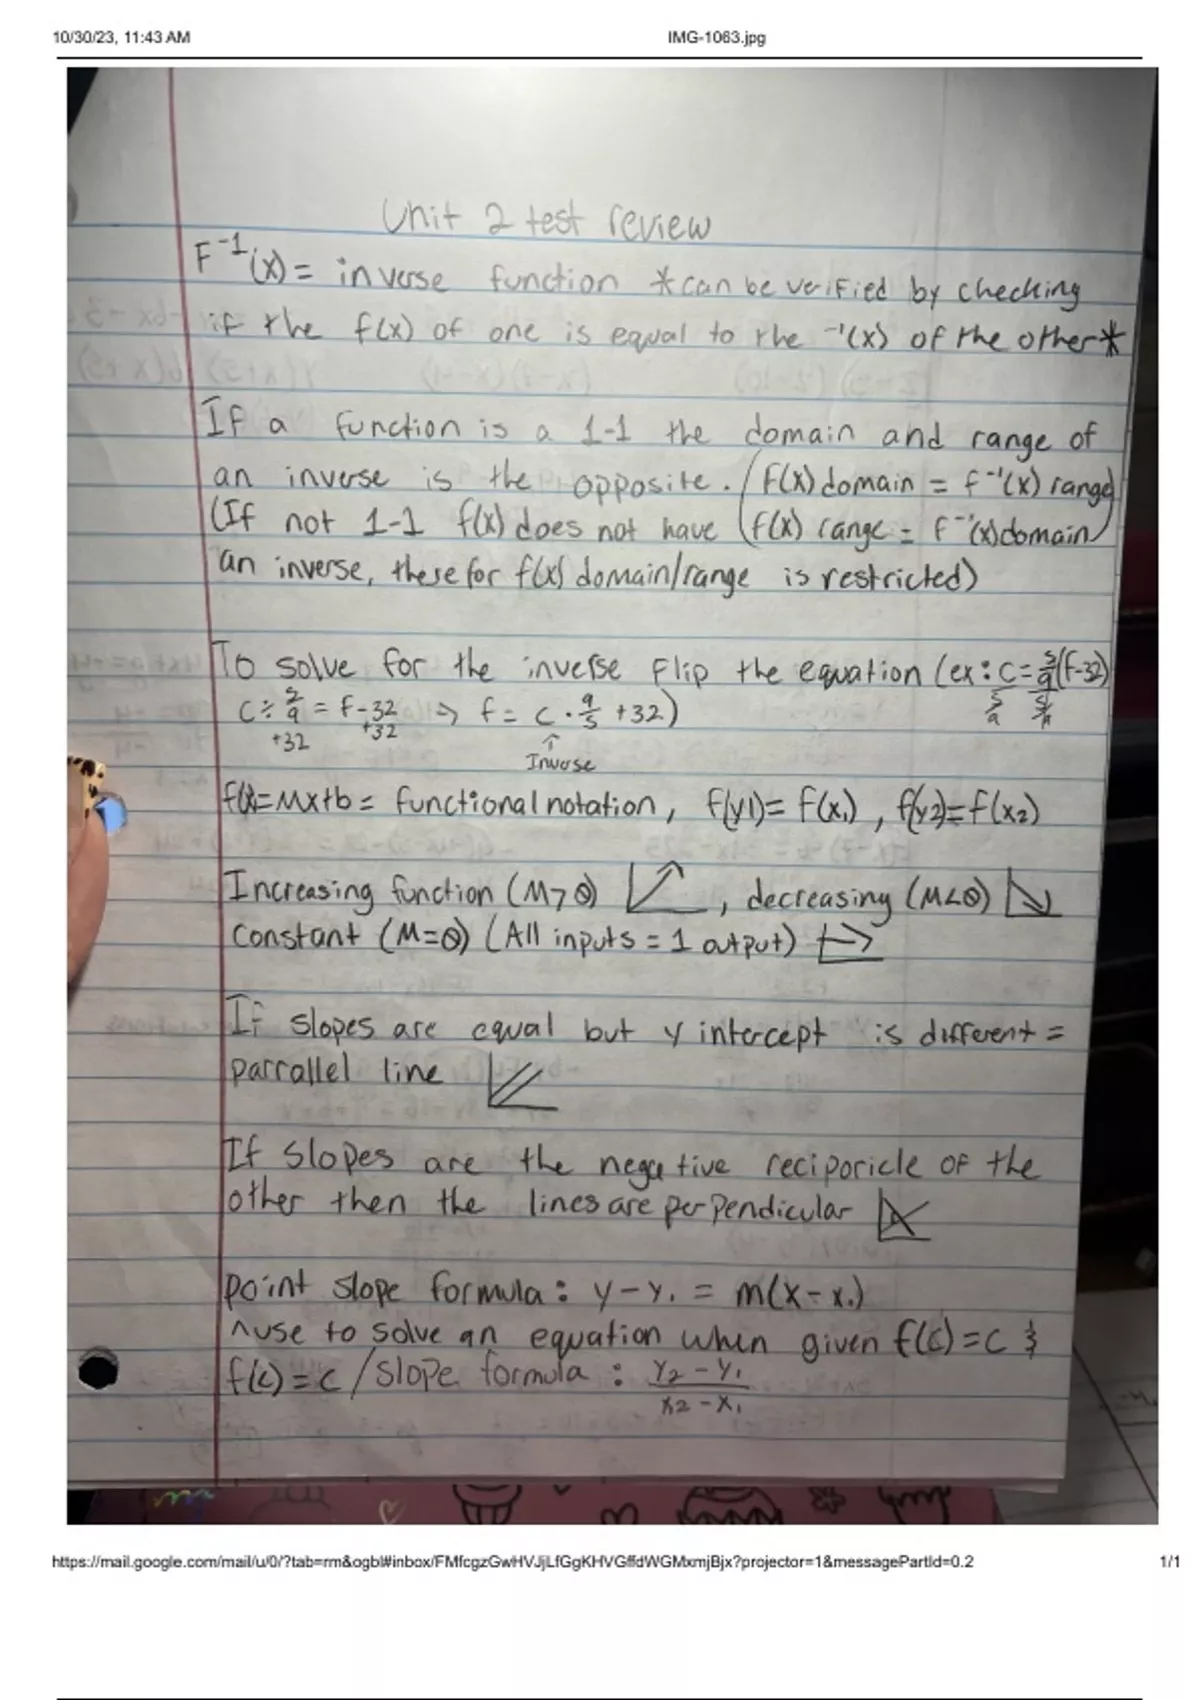 10/30/23, 11:43 AM
IMG-1063.jpg
Unit 2 test review
F⁻¹(x) = inverse function *can be verified by checking
if the f(x) of one is equal to the ⁻¹(x) of the other*
If a function is a 1-1 the domain and range of
an inverse is the opposite. (F(x) domain = f⁻¹(x) range
(If not 1-1 f(x) does not have (f(x) range = f⁻¹(x) domain)
an inverse, therefor f(x) domain/range is restricted)
To solve for the inverse Flip the equation (ex: C = 5/9(F-32)
C ÷ 5/9 = F-32 → f = C · 9/5 +32)
+32 +32
↑
Inverse
f(x)=Mx+b = functional notation, f(y1)= f(x₁), f(y2)=f(x₂)
Increasing function (M>0), decreasing (M<0)
constant (M=0) (All inputs = 1 output)
If slopes are equal but y intercept is different =
parrallel line
If slopes are the negative reciporicle of the
other then the lines are perpendicular
point slope formula: y-y₁ = m(x-x₁)
^use to solve an equation when given f(c)=c &
f(c)=c / slope formula: y₂-y₁
x₂-x₁
https://mail.google.com/mail/u/0/?tab=rm&ogbl#inbox/FMfcgzGwHVJjLfGgKHVGffdWGMxmjBjx?projector=1&messagePartId=0.2
1/1